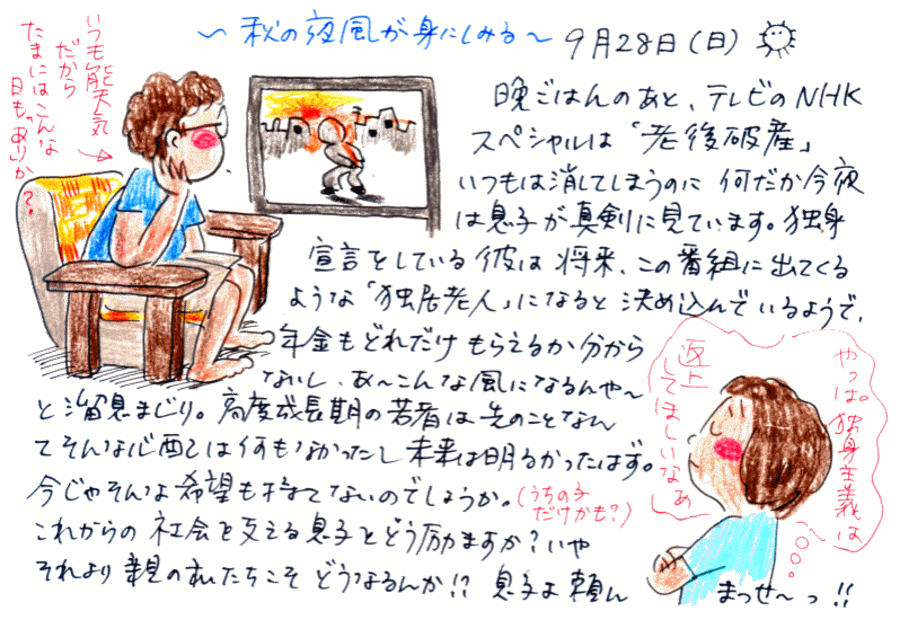 ～秋の夜風が身にしみる～
9月28日(日)
いつも能天気
だから
たまにはこんな
日も"あり"か?
晩ごはんのあと、テレビのNHK
スペシャルは「老後破産」
いつもは消してしまうのに 何だか今夜
は息子が真剣に見ています。独身
宣言をしている彼は 将来、この番組に出てくる
ような「独居老人」になると 決め込んでいるようで、
年金もどれだけ もらえるか分から
ないし、あ～こんな風になるんや～
と溜息まじり。高度成長期の若者は先のことなん
てそんな心配は何もなかったし 未来は明るかったはず。
今じゃそんな希望も持てないのでしょうか。(うちの子
だけかも?)
これからの 社会を支える息子をどう励ますか?いや
それより 親の私たちこそ どうなるんか!? 息子よ頼ん まっせ～っ!!
やっぱ。独身主義は
返上
してほしいなぁ